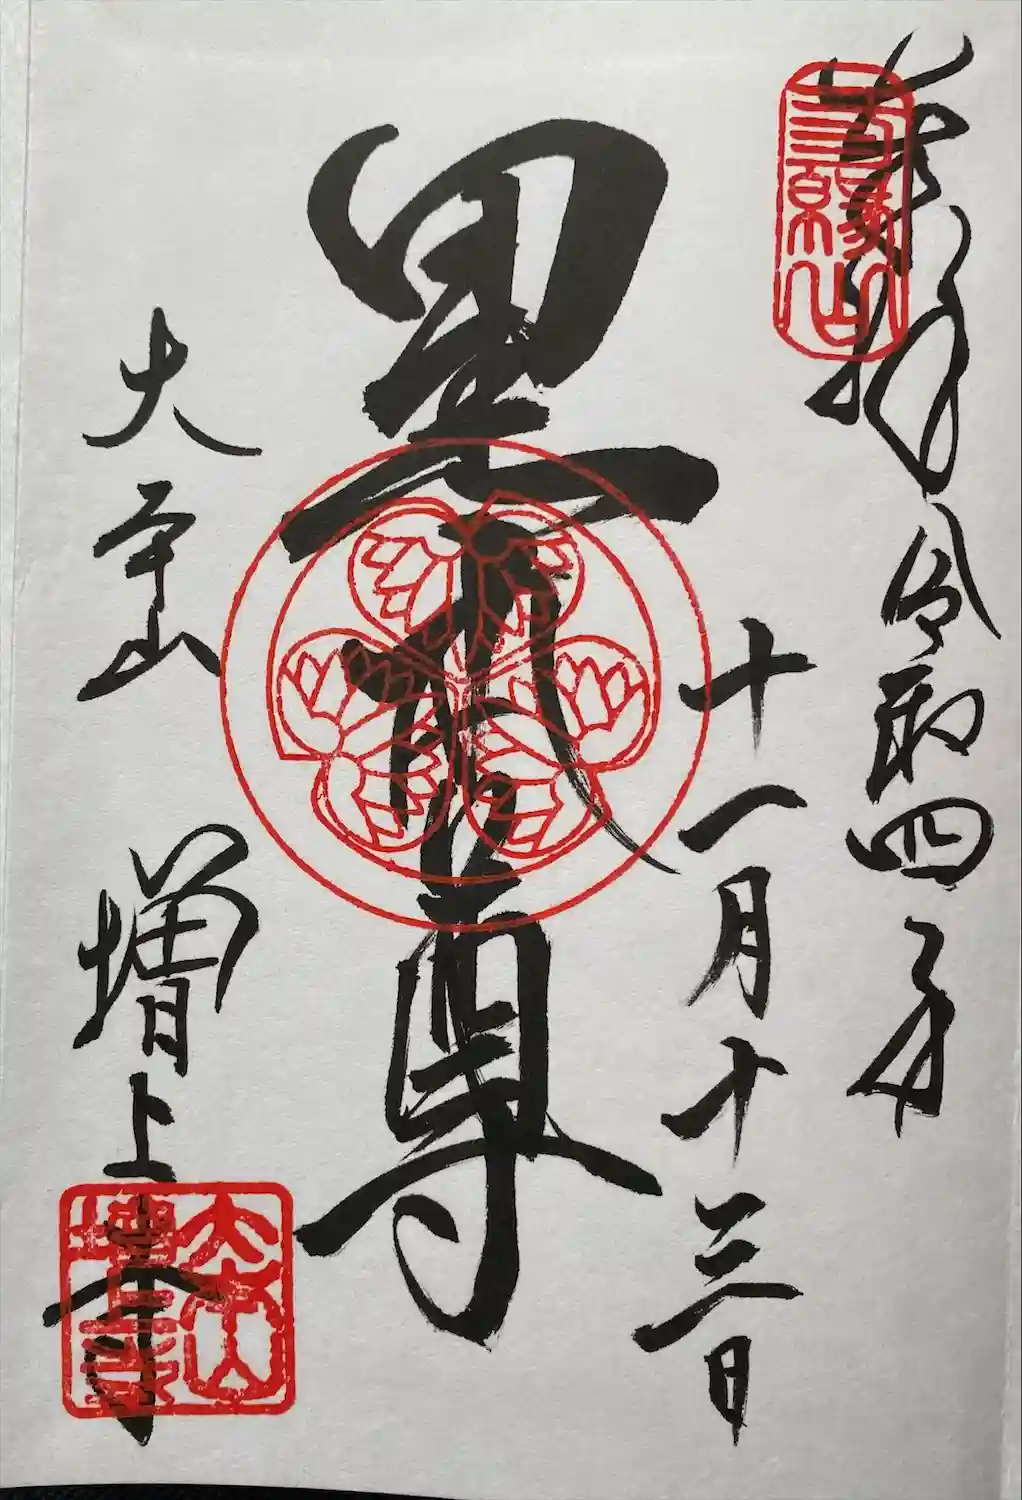 奉拝
令和四年
十一月十三日
黒本尊
大本山
増上寺
三縁山
大本山
増上寺